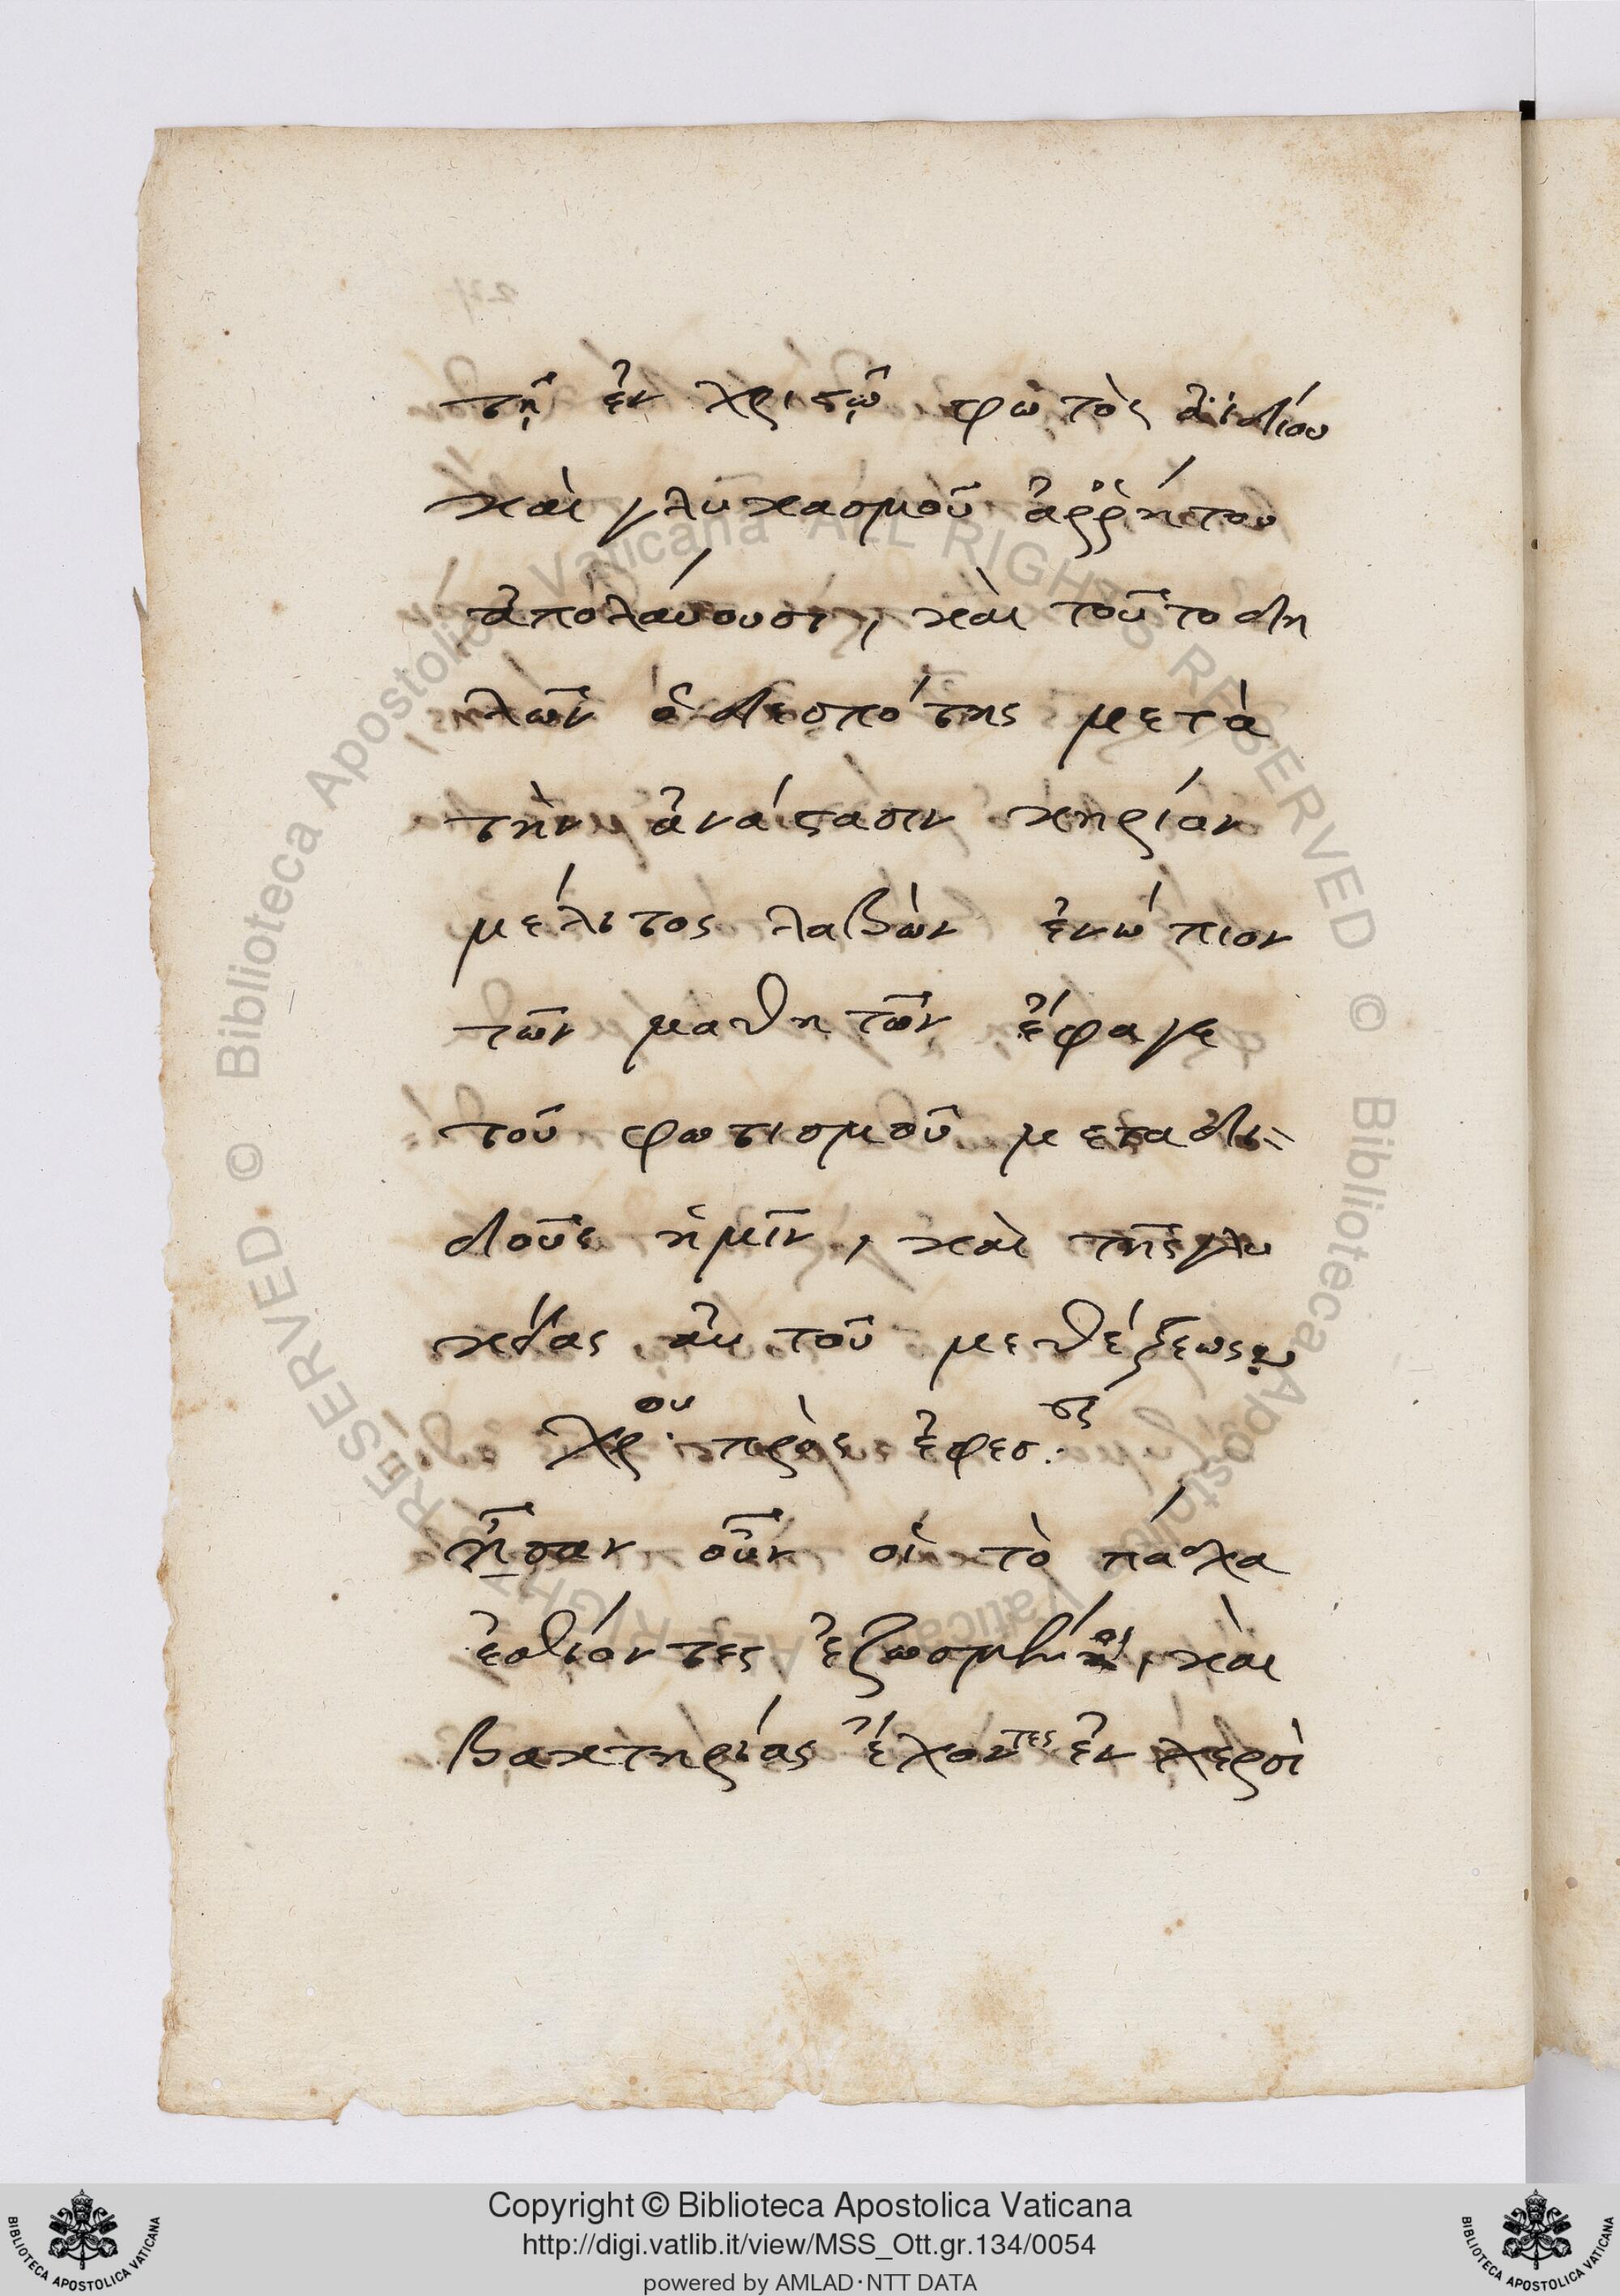 τῆ ἐν χριστῶ φωτὸς ἀϊδίου
καὶ γλυκασμοῦ ἀῤῥήτου
ἀπολαύουσι, καὶ τοῦτο δη
λῶν ὁ δεσπότης μετὰ
τὴν ἀνάστασιν κηρίον
μέλιτος λαβὼν ἐνώπιον
τῶν μαθητῶν ἔφαγε
τοῦ φωτισμοῦ μεταδι=
δοὺς ἡμῖν, καὶ τῆς γλυ
κείας αὐτοῦ μεθέξεως
χρ.ου πρὸς ἐφεσ.
ἦσαν οὖν οἱ τὸ πάσχα
ἐσθίοντες ἐζωσμένοι, καὶ
βακτηρίας ἔχοντες ἐν χερσὶ
Copyright © Biblioteca Apostolica Vaticana
http://digi.vatlib.it/view/MSS_Ott.gr.134/0054
powered by AMLAD·NTT DATA
BIBLIOTECA APOSTOLICA VATICANA
BIBLIOTECA APOSTOLICA VATICANA
© Biblioteca Apostolica Vaticana ALL RIGHTS RESERVED
© Biblioteca Apostolica Vaticana ALL RIGHTS RESERVED